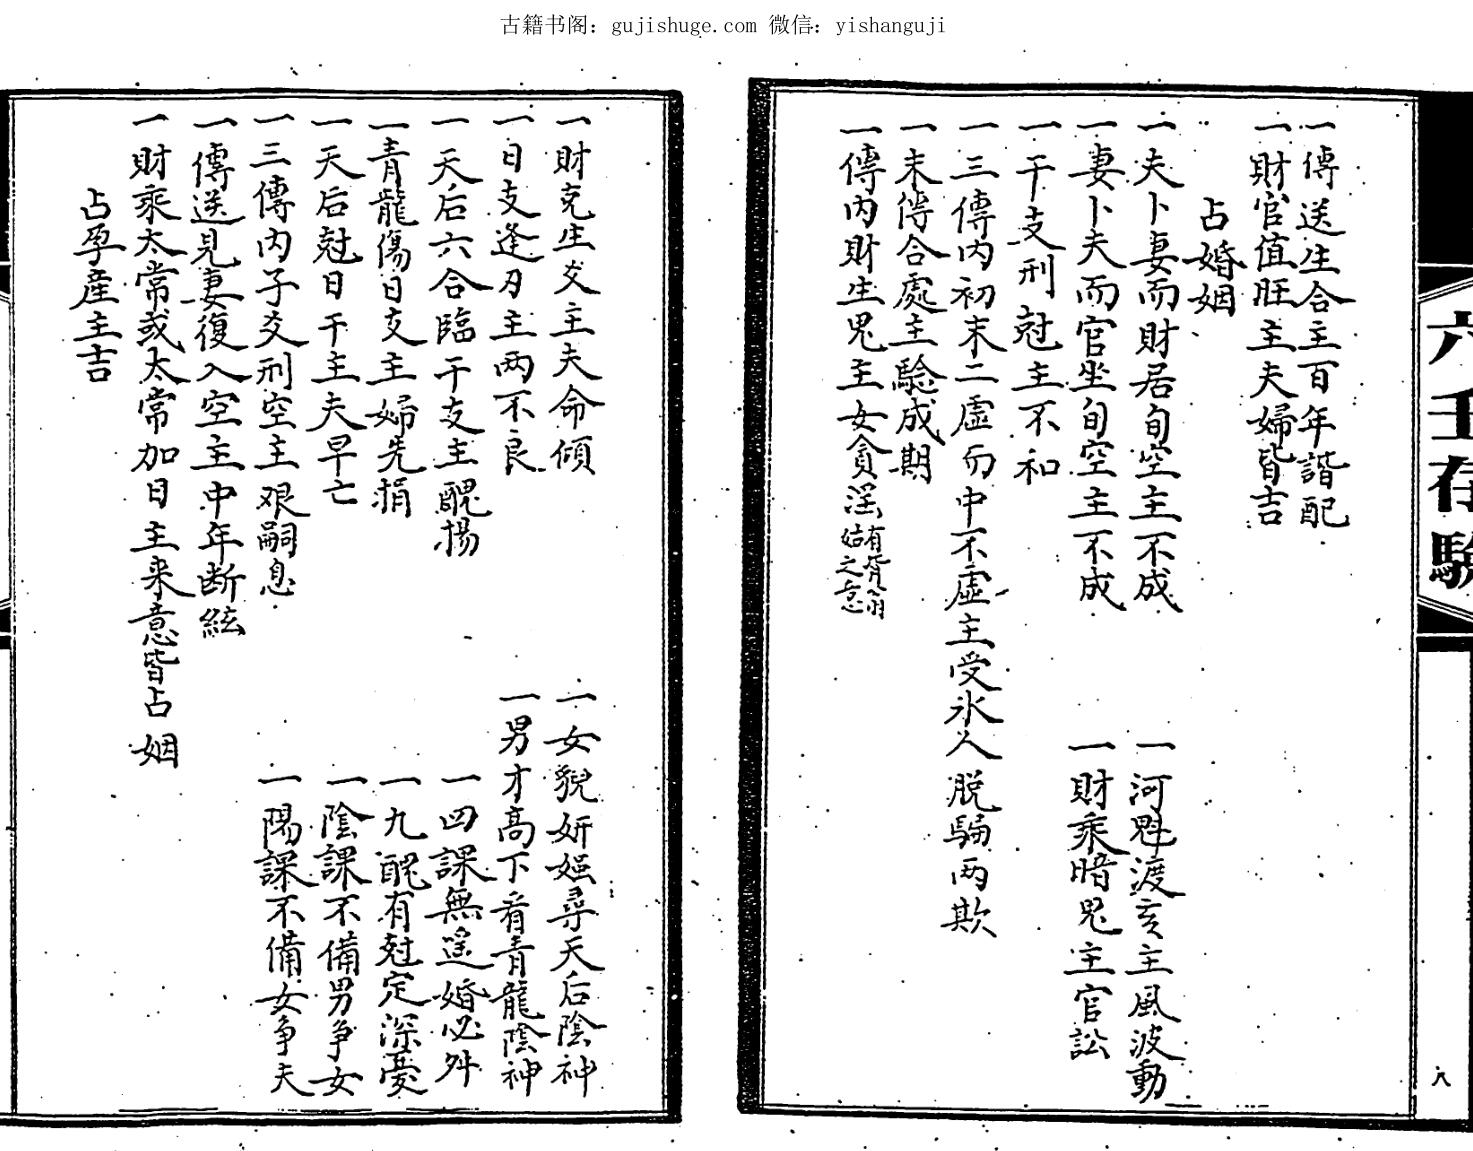 古籍书阁：gujishuge.com 微信：yishanguji
六壬存驗
八
一傳送生合主百年諧配
一財官值旺主夫婦皆吉
占婚姻
一夫卜妻而財居旬空主不成
一河魁渡亥主風波動
一妻卜夫而官坐旬空主不成
一財乘暗鬼主官訟
一干支刑尅主不和
一三傳內初末二虛而中不虛主受氷人脫騙兩欺
一末傳合處主驗成期
一傳內財生鬼主女貪淫有胥翁姑之意
一財克生爻主夫命傾
一女貌妍媸尋天后陰神
一日支逢刃主兩不良
一男才高下看青龍陰神
一天后六合臨干支主醜揚
一四課無遥婚必舛
一青龍傷日支主婦先捐
一九醜有尅定深憂
一天后尅日干主夫早亡
一陰課不備男爭女
一三傳內子爻刑空主艰嗣息
一陽課不備女爭夫
一傳送見妻復入空主中年断絃
一財乘太常或太常加日主来意皆占姻
占孕産主吉